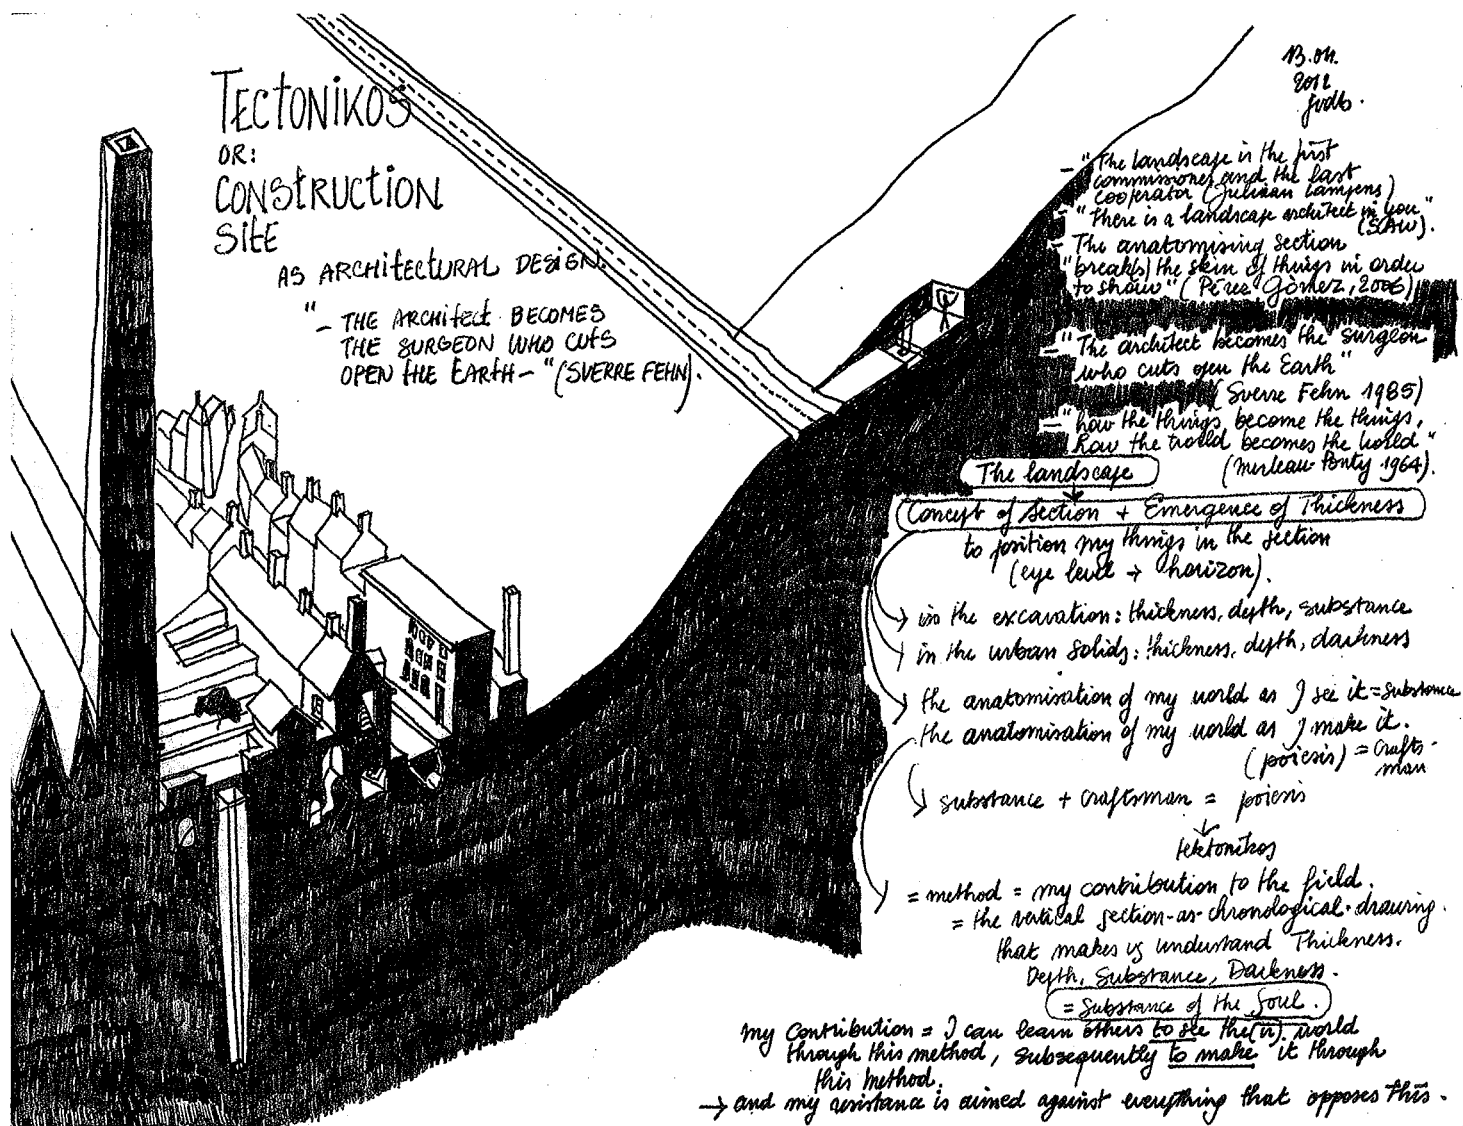 TECTONIKOS
OR:
CONSTRUCTION
SITE
AS ARCHITECTURAL DESIGN.
"– THE ARCHITECT BECOMES
THE SURGEON WHO CUTS
OPEN THE EARTH – " (SVERRE FEHN).
13.04.
2012
– "The landscape is the first
commissioner and the last
cooperator (Juliaan Lampens)
– "There is a landscape architect in you"
(SAW).
– The anatomising section
"break(s) the skin of things in order
to show" (Pérez Gòmez, 2006)
– "The architect becomes the surgeon
who cuts open the Earth"
(Sverre Fehn 1985)
– "how the things become the things,
how the world becomes the world"
(Merleau-Ponty 1964).
The landscape
Concept of Section + Emergence of Thickness
to position my things in the section
(eye level → horizon).
in the excavation: thickness, depth, substance
in the urban solids: thickness, depth, darkness
the anatomisation of my world as I see it = substance
the anatomisation of my world as I make it.
(poiesis) = crafts-
man
substance + craftsman = poiesis
tektonikos
= method = my contribution to the field.
= the vertical section-as-chronological-drawing.
that makes us understand Thickness.
Depth, Substance, Darkness.
= Substance of the Soul.
my contribution = I can learn others to see the(ir) world
through this method, subsequently to make it through
this method.
→ and my resistance is aimed against everything that opposes this.